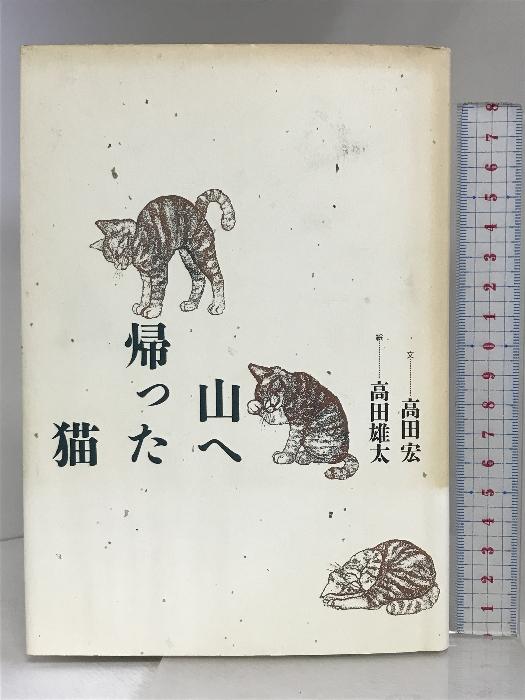 山へ
帰った
猫
文………高田宏
絵………高田雄太
8 7 6 5 4 3 2 1 0 9 8 7 6 5 4 3 2 1